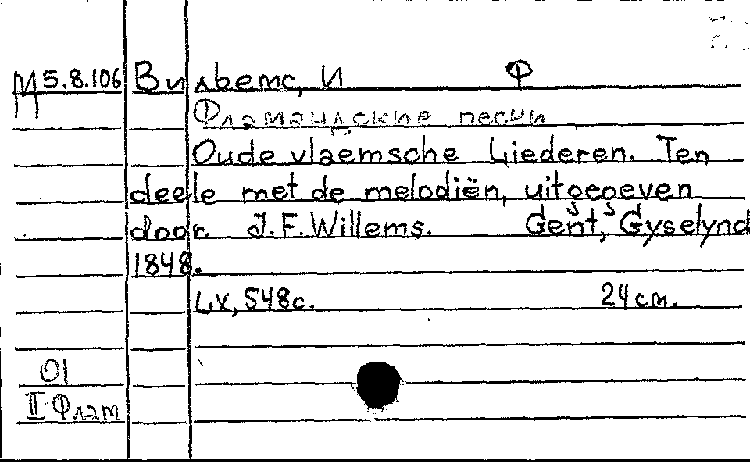 М5.8.106 Вильбемс, И Ф
Фламандские песни
Oude vlaemsche Liederen. Ten
deele met de melodiën, uitgegeven
door J.F. Willems. Gent, Gyselynd
1848.
LX, 548c. 24 cm.
01
II Флат